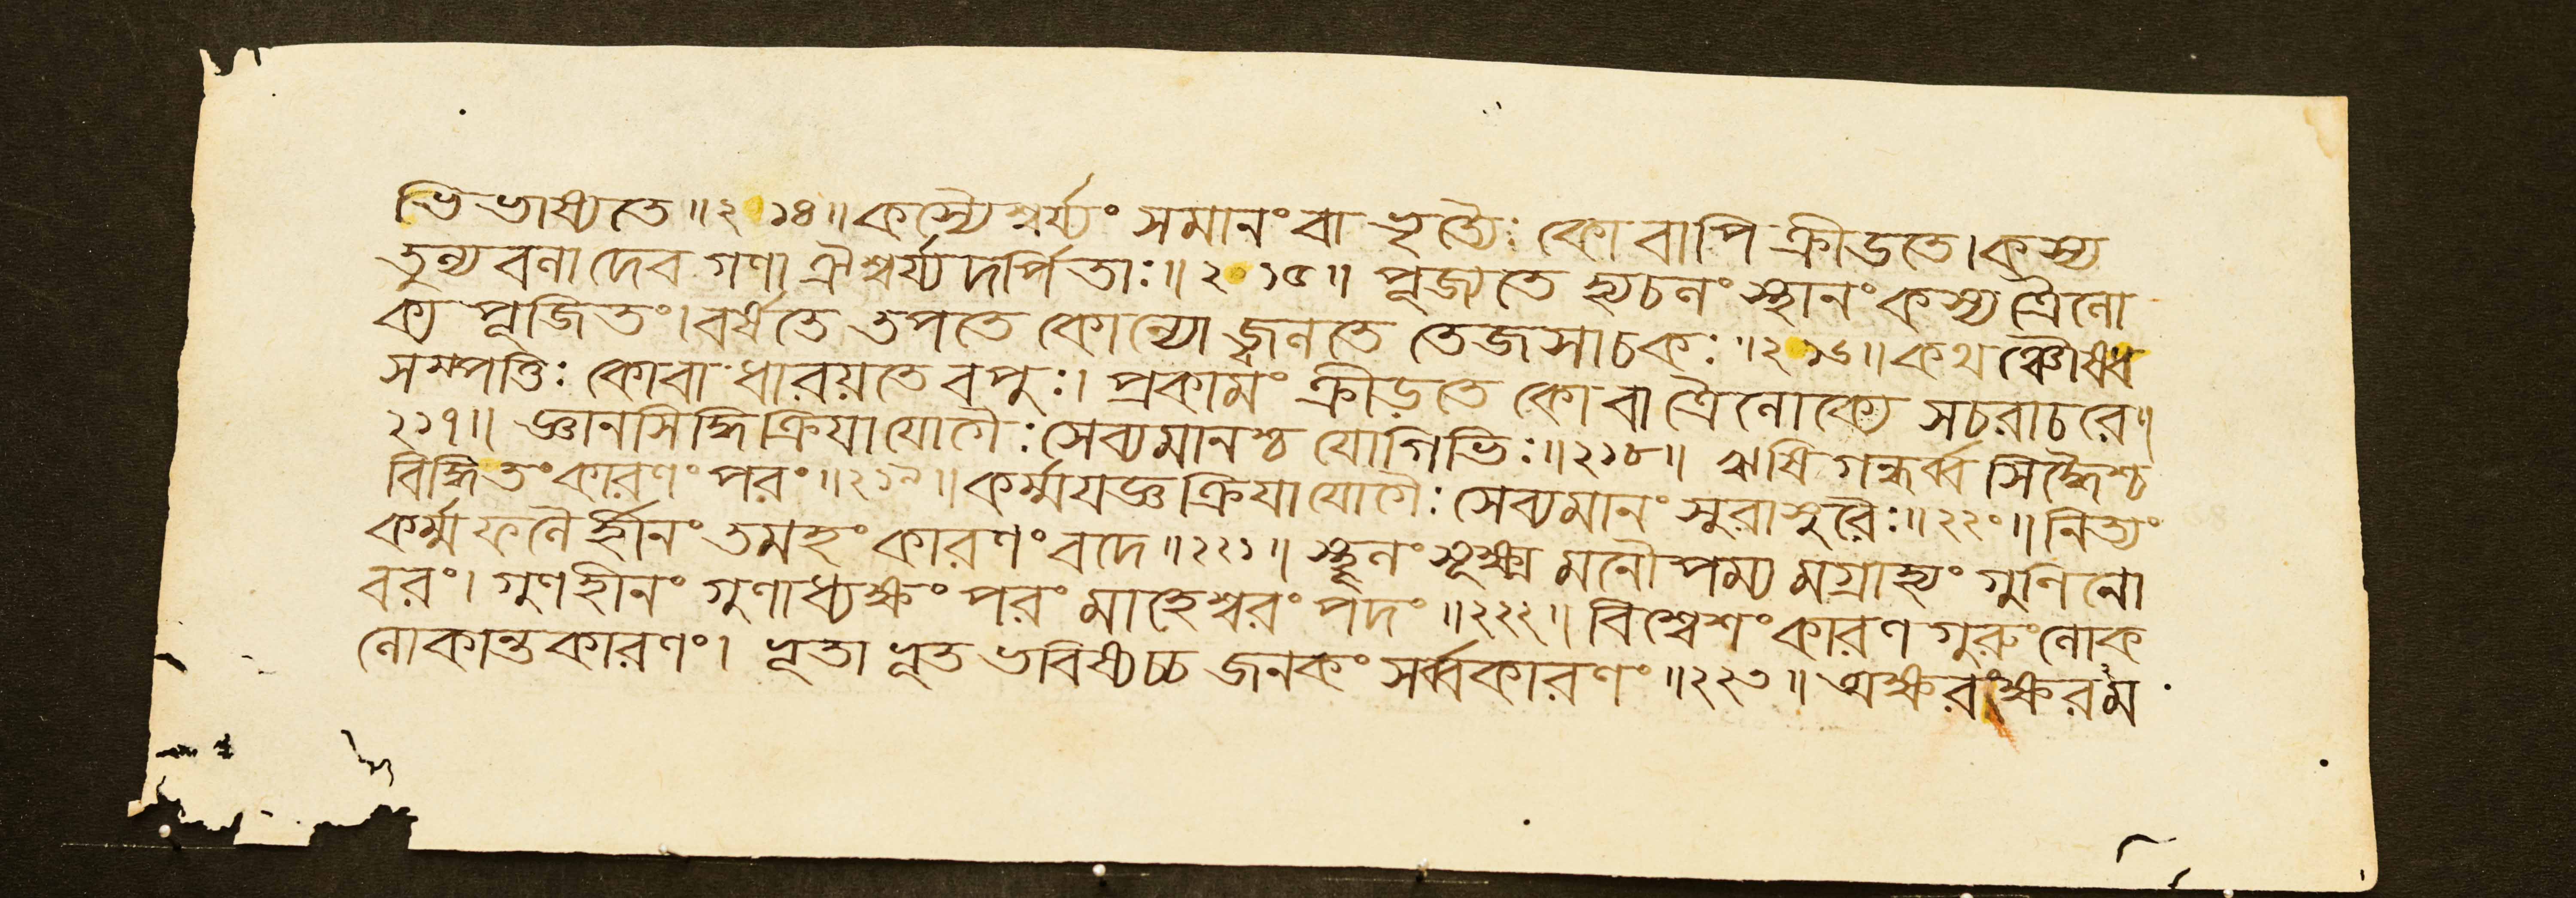 ভিভাষ্যতে॥২১৪॥কস্যৈশ্বর্য্যং সমানংবা ভৃত্যৈঃ কোবাপি ক্রীডতে।কস্য
তুল্যবলাদেবগণা ঐশ্বর্য্যদর্পিতাঃ॥২১৫॥ পূজ্যতে হ্যচলং স্থানং কস্য ত্রৈলো
ক্য পূজিতং।বর্ষতে তপতে কোন্যো জ্বলতে তেজসাচকঃ॥২১৬॥কথ ঞ্চৌষধ
সম্পত্তিঃ কোবা ধারয়তে বপুঃ। প্রকামং ক্রীড়তে কোবা ত্রৈলোক্যে সচরাচরে॥
২১৭॥ জ্ঞানসিদ্ধিক্রিয়াযোগৈঃসেব্যমানশ্চ যোগিভিঃ॥২১৮॥ ঋষি গন্ধর্ব্ব সিদ্ধৈশ্চ
বিদ্ধিতংকারণং পরং॥২১৯॥কর্ম্মযজ্ঞক্রিয়াযোগৈঃ সেব্যমানং সুরাসুরৈঃ॥২২০॥নিত্যং
কর্ম্মফলৈর্হীনং তমহং কারণং বদে॥২২১॥ স্থূলং সূক্ষ্ম মনৌপম্য মগ্রাহ্যং গুণিনো
বরং। গুণহীনং গুণাধ্যক্ষং পরং মাহেশ্বরং পদং॥২২২॥বিশ্বেশং কারণ গুরুং লোক
লোকান্তকারণং। ভূতা ভূত ভবিষ্যচ্চ জনকং সর্ব্বকারণং॥২২৩॥অক্ষরংক্ষরম